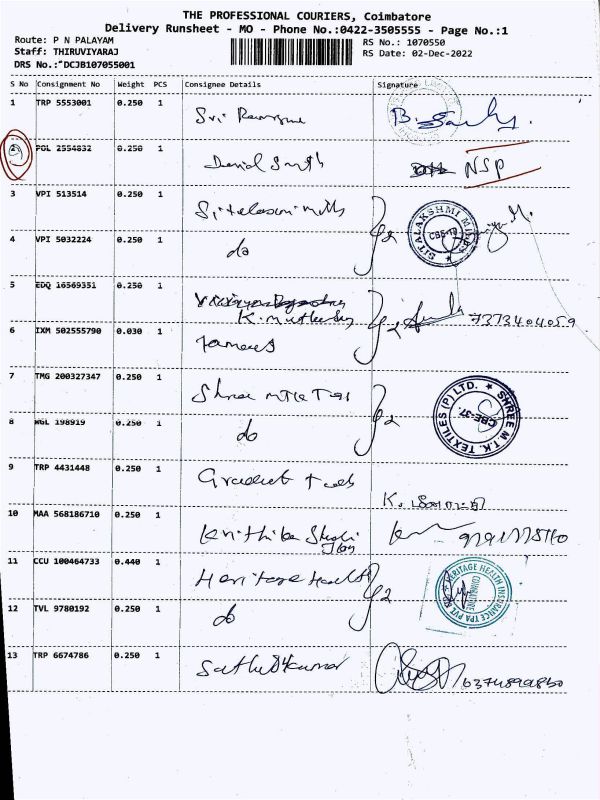 THE PROFESSIONAL COURIERS, Coimbatore
Delivery Runsheet - MO - Phone No.:0422-3505555 - Page No.:1
Route: P N PALAYAM
Staff: THIRUVIYARAJ
DRS No.: DCJB107055001
RS No.: 1070550
RS Date: 02-Dec-2022
S No Consignment No Weight PCS Consignee Details Signature
1 TRP 5553001 0.250 1 Sri
2 PGL 2554832 0.250 1 David Smith NSP
3 VPI 513514 0.250 1
SITALAKSHMI MILLS
CBE-18
4 VPI 5032224 0.250 1 do
5 EDQ 16569351 0.250 1
K. 7373404059
6 IXM 502555790 0.030 1
7 TMG 200327347 0.250 1 Shree
SHREE M.T.K. TEXTILES (P) LTD.
CBE-37.
8 WGL 198919 0.250 1 do
9 TRP 4431448 0.250 1
10 MAA 568186710 0.250 1 Krithika
11 CCU 100464733 0.440 1 Heritage Health
HERITAGE HEALTH INSURANCE TPA PVT
COIMBATORE
12 TVL 9780192 0.250 1 do
13 TRP 6674786 0.250 1 Sathishkumar
6374899850